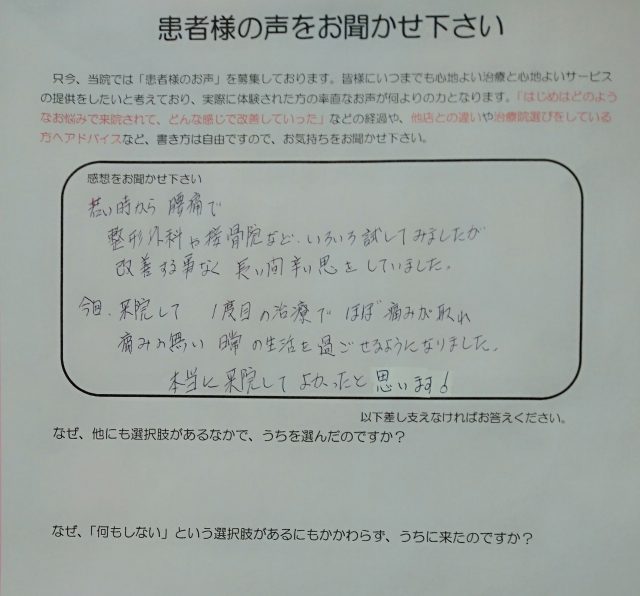 患者様の声をお聞かせ下さい
只今、当院では「患者様のお声」を募集しております。皆様にいつまでも心地よい治療と心地よいサービス
の提供をしたいと考えており、実際に体験された方の率直なお声が何よりの力となります。「はじめはどのよう
なお悩みで来院されて、どんな感じで改善していった」などの経過や、他店との違いや治療院選びをしている
方へアドバイスなど、書き方は自由ですので、お気持ちをお聞かせ下さい。
感想をお聞かせ下さい
若い時から 腰痛で
整形外科や接骨院など、いろいろ試してみましたが
改善する事なく 長い間辛い思をしていました。
今回、来院して 1度目の治療で ほぼ痛みが取れ
痛みの無い 日常の生活を過ごせるようになりました。
本当に来院して よかったと思います!
以下差し支えなければお答えください。
なぜ、他にも選択肢があるなかで、うちを選んだのですか?
なぜ、「何もしない」という選択肢があるにもかかわらず、うちに来たのですか?